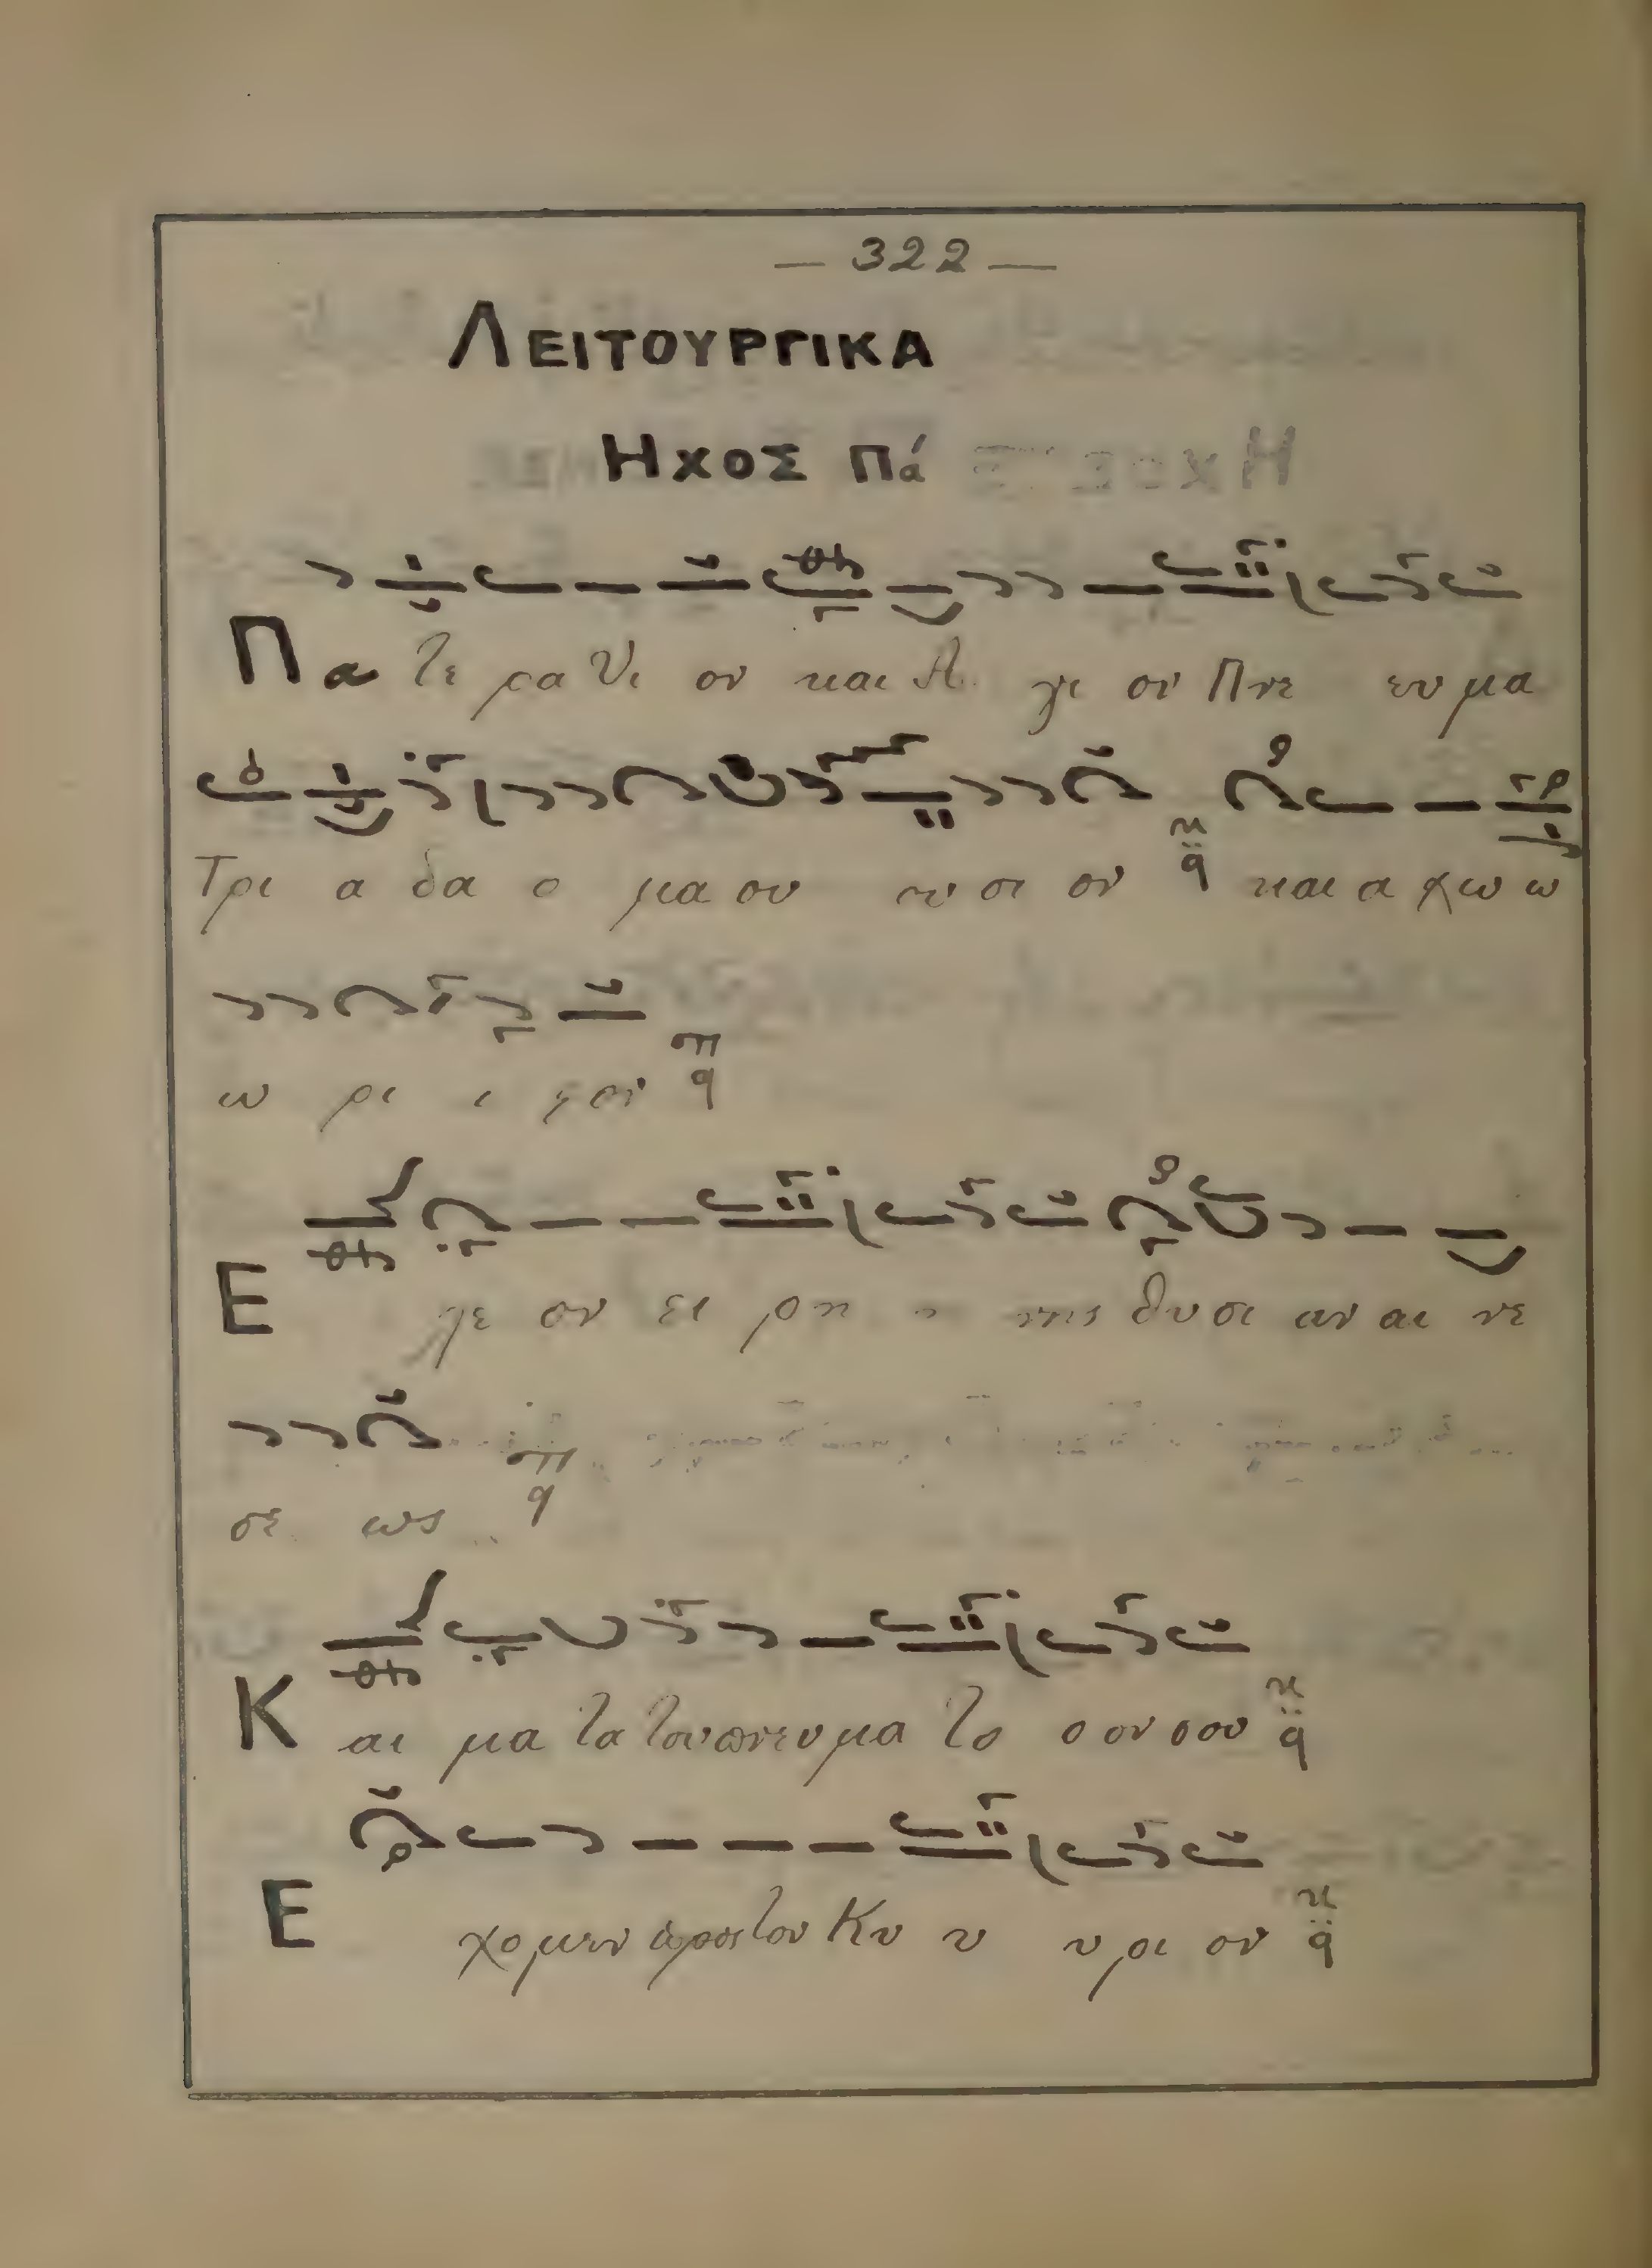 — 322 —
ΛΕΙΤΟΥΡΓΙΚΑ
ΗΧΟΣ Πά
Πα τε ρα Υι ον και Α γι ον Πνε ευ μα
Τρι α δα ο μα ου ου σι ον και α χω ω
ω ρι ι ϛον
Ε λε ον ει ρη η νης θυ σι αν αι νε
σε ως
Και με τα του πνευ μα το ο ον σου
Ε χο μεν προς τον Κυ υ υ ρι ον